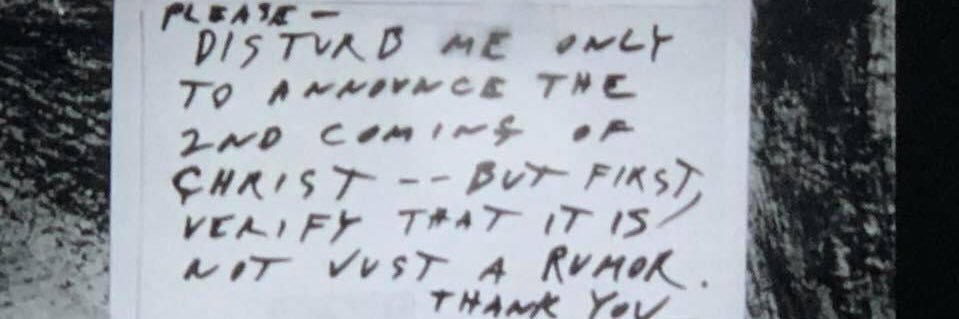 PLEASE -
DISTURB ME ONLY
TO ANNOUNCE THE
2ND COMING OF
CHRIST -- BUT FIRST,
VERIFY THAT IT IS
NOT JUST A RUMOR.
THANK YOU